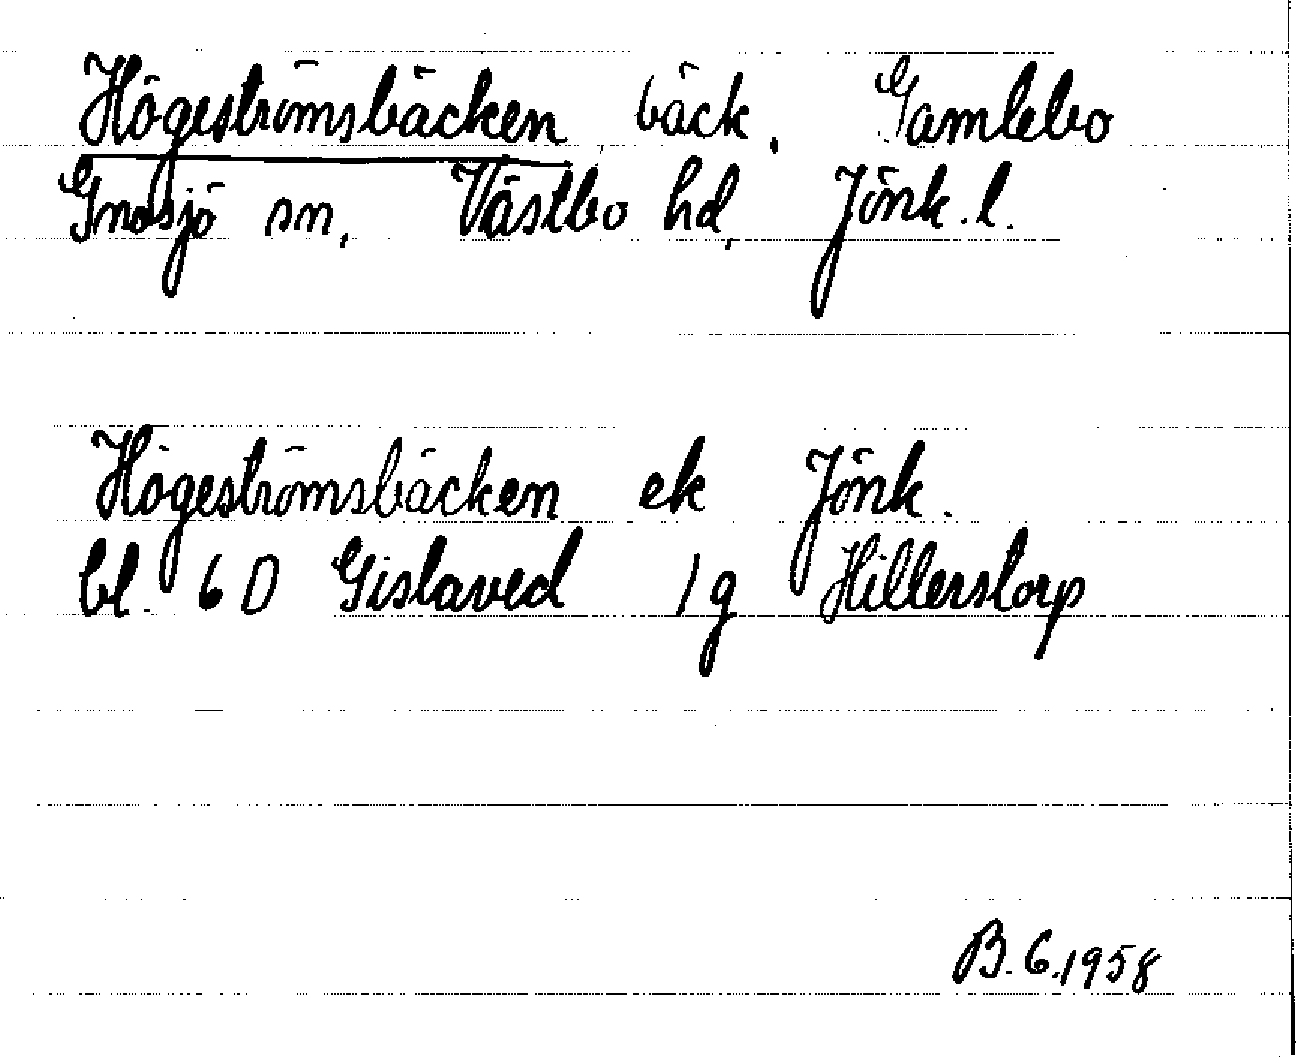 Högeströmsbäcken bäck. Gamlebo
Gnosjö sn, Västbo hd, Jönk. l.
Högeströmsbäcken ek Jönk.
bl. 6 D Gislaved 1g Hillerstorp
B. G. 1958